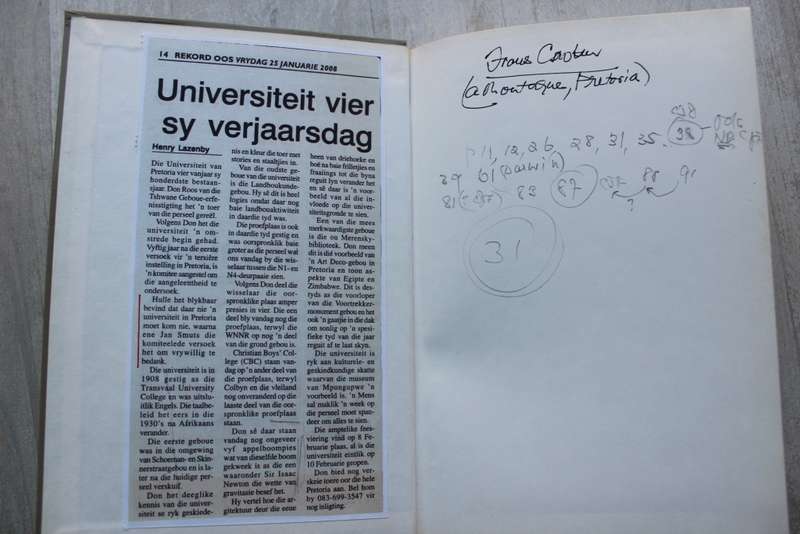 14 REKORD OOS VRYDAG 25 JANUARIE 2008
Universiteit vier
sy verjaarsdag
Henry Lazenby
Die Universiteit van
Pretoria vier vanjaar sy
honderdste bestaan-
sjaar. Don Roos van die
Tshwane Geboue-erfe-
nisstigting het 'n toer
van die perseel gereël.
Volgens Don het die
universiteit 'n om-
strede begin gehad.
Vyftig jaar na die eerste
versoek vir 'n tersiêre
instelling in Pretoria, is
'n komitee aangestel om
die aangeleentheid te
ondersoek.
Hulle het blykbaar
bevind dat daar nie 'n
universiteit in Pretoria
moet kom nie, waarna
ene Jan Smuts die
komiteelede versoek
het om vrywillig te
bedank.
Die universiteit is in
1908 gestig as die
Transvaal University
College en was uitslu-
itlik Engels. Die taalbe-
leid het eers in die
1930's na Afrikaans
verander.
Die eerste geboue
was in die omgewing
van Schoeman- en Skin-
nerstraatgebou en is la-
ter na die huidige per-
seel verskuif.
Don het deeglike
kennis van die univer-
siteit se ryk geskiede-
nis en kleur die toer met
stories en staaltjies in.
Van die oudste gebou
van die universiteit
is die Landboukunde-
gebou. Hy sê dit is heel
logies omdat daar nog
baie landbouaktiwiteit
in daardie tyd was.
Die proefplaas is ook
in daardie tyd gestig en
was oorspronklik baie
groter as die perseel wat
ons vandag by die
wisselaar tussen die N1- en
N4-deurpaaie sien.
Volgens Don deel die
wisselaar die oor-
spronklike plaas amper
presies in vier. Die een
deel bly vandag nog die
proefplaas, terwyl die
WNNR op nog 'n deel
van die grond gebou is.
Christian Boys' Col-
lege (CBC) staan van-
dag op 'n ander deel van
die proefplaas, terwyl
Colbyn en die vleiland
nog onveranderd op die
laaste deel van die oor-
spronklike proefplaas
staan.
Don sê daar staan
vandag nog ongeveer
vyf appelboompies
wat van dieselfde boom
gekweek is as die een
waaronder Sir Isaac
Newton die wette van
gravitasie besef het.
Hy vertel hoe die ar-
gitektuur deur die eeue
heen van driehoeke en
boë na baie frilletjies en
fraaiings tot die byna
reguit lyn verander het
en sê daar is 'n voor-
beeld van al die in-
vloede op die universi-
teitsgronde te sien.
Een van die mees
merkwaardigste geboue
is die ou Merensky-
biblioteek. Don meen
dit is dié voorbeeld van
'n Art Deco-gebou in
Pretoria en toon aspek-
te van Egipte en
Zimbabwe. Dit is des-
tyds as die voorloper
van die Voortrekker-
monument gebou en het
ook 'n gaatjie in die dak
om sonlig op 'n spesi-
fieke tyd van die jaar
reguit af te laat skyn.
Die universiteit is
ryk aan kulturele- en
geskiedkundige skatte
waarvan die museum
van Mpungupwe 'n
voorbeeld is. 'n Mens
sal maklik 'n week op
die perseel moet span-
deer om alles te sien.
Die amptelike fees-
viering vind op 8
Februarie plaas, al is die
universiteit eintlik op
10 Februarie geopen.
Don bied nog ver-
skeie toere oor die hele
Pretoria aan. Bel hom
by 083-699-3547 vir
nog inligting.
Pretoria)
11, 12, 26, 28, 31, 35. 38
39 61 (Darwin)
81 83 87 88 91
?
31